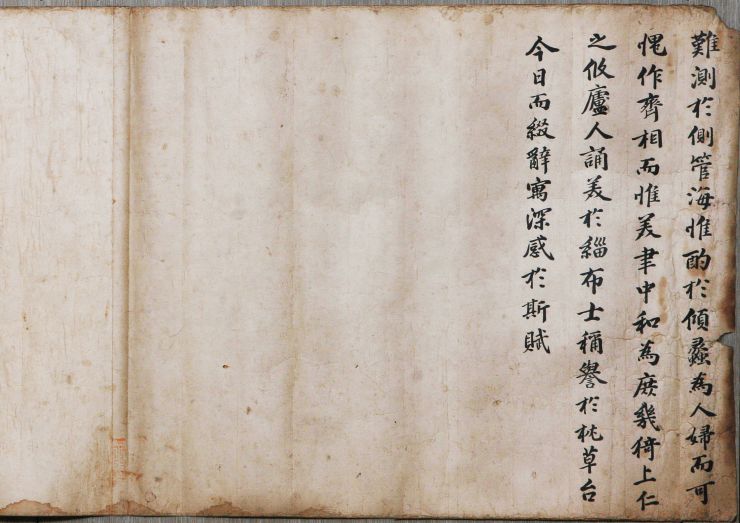 難測於側管海惟酌於傾蠡為人婦而可
愧作齊相而惟美聿中和為庶幾猗上仁
之攸廬人誦美於緇布士稱譽於枕草台
今日而綴辭寓深感於斯賦